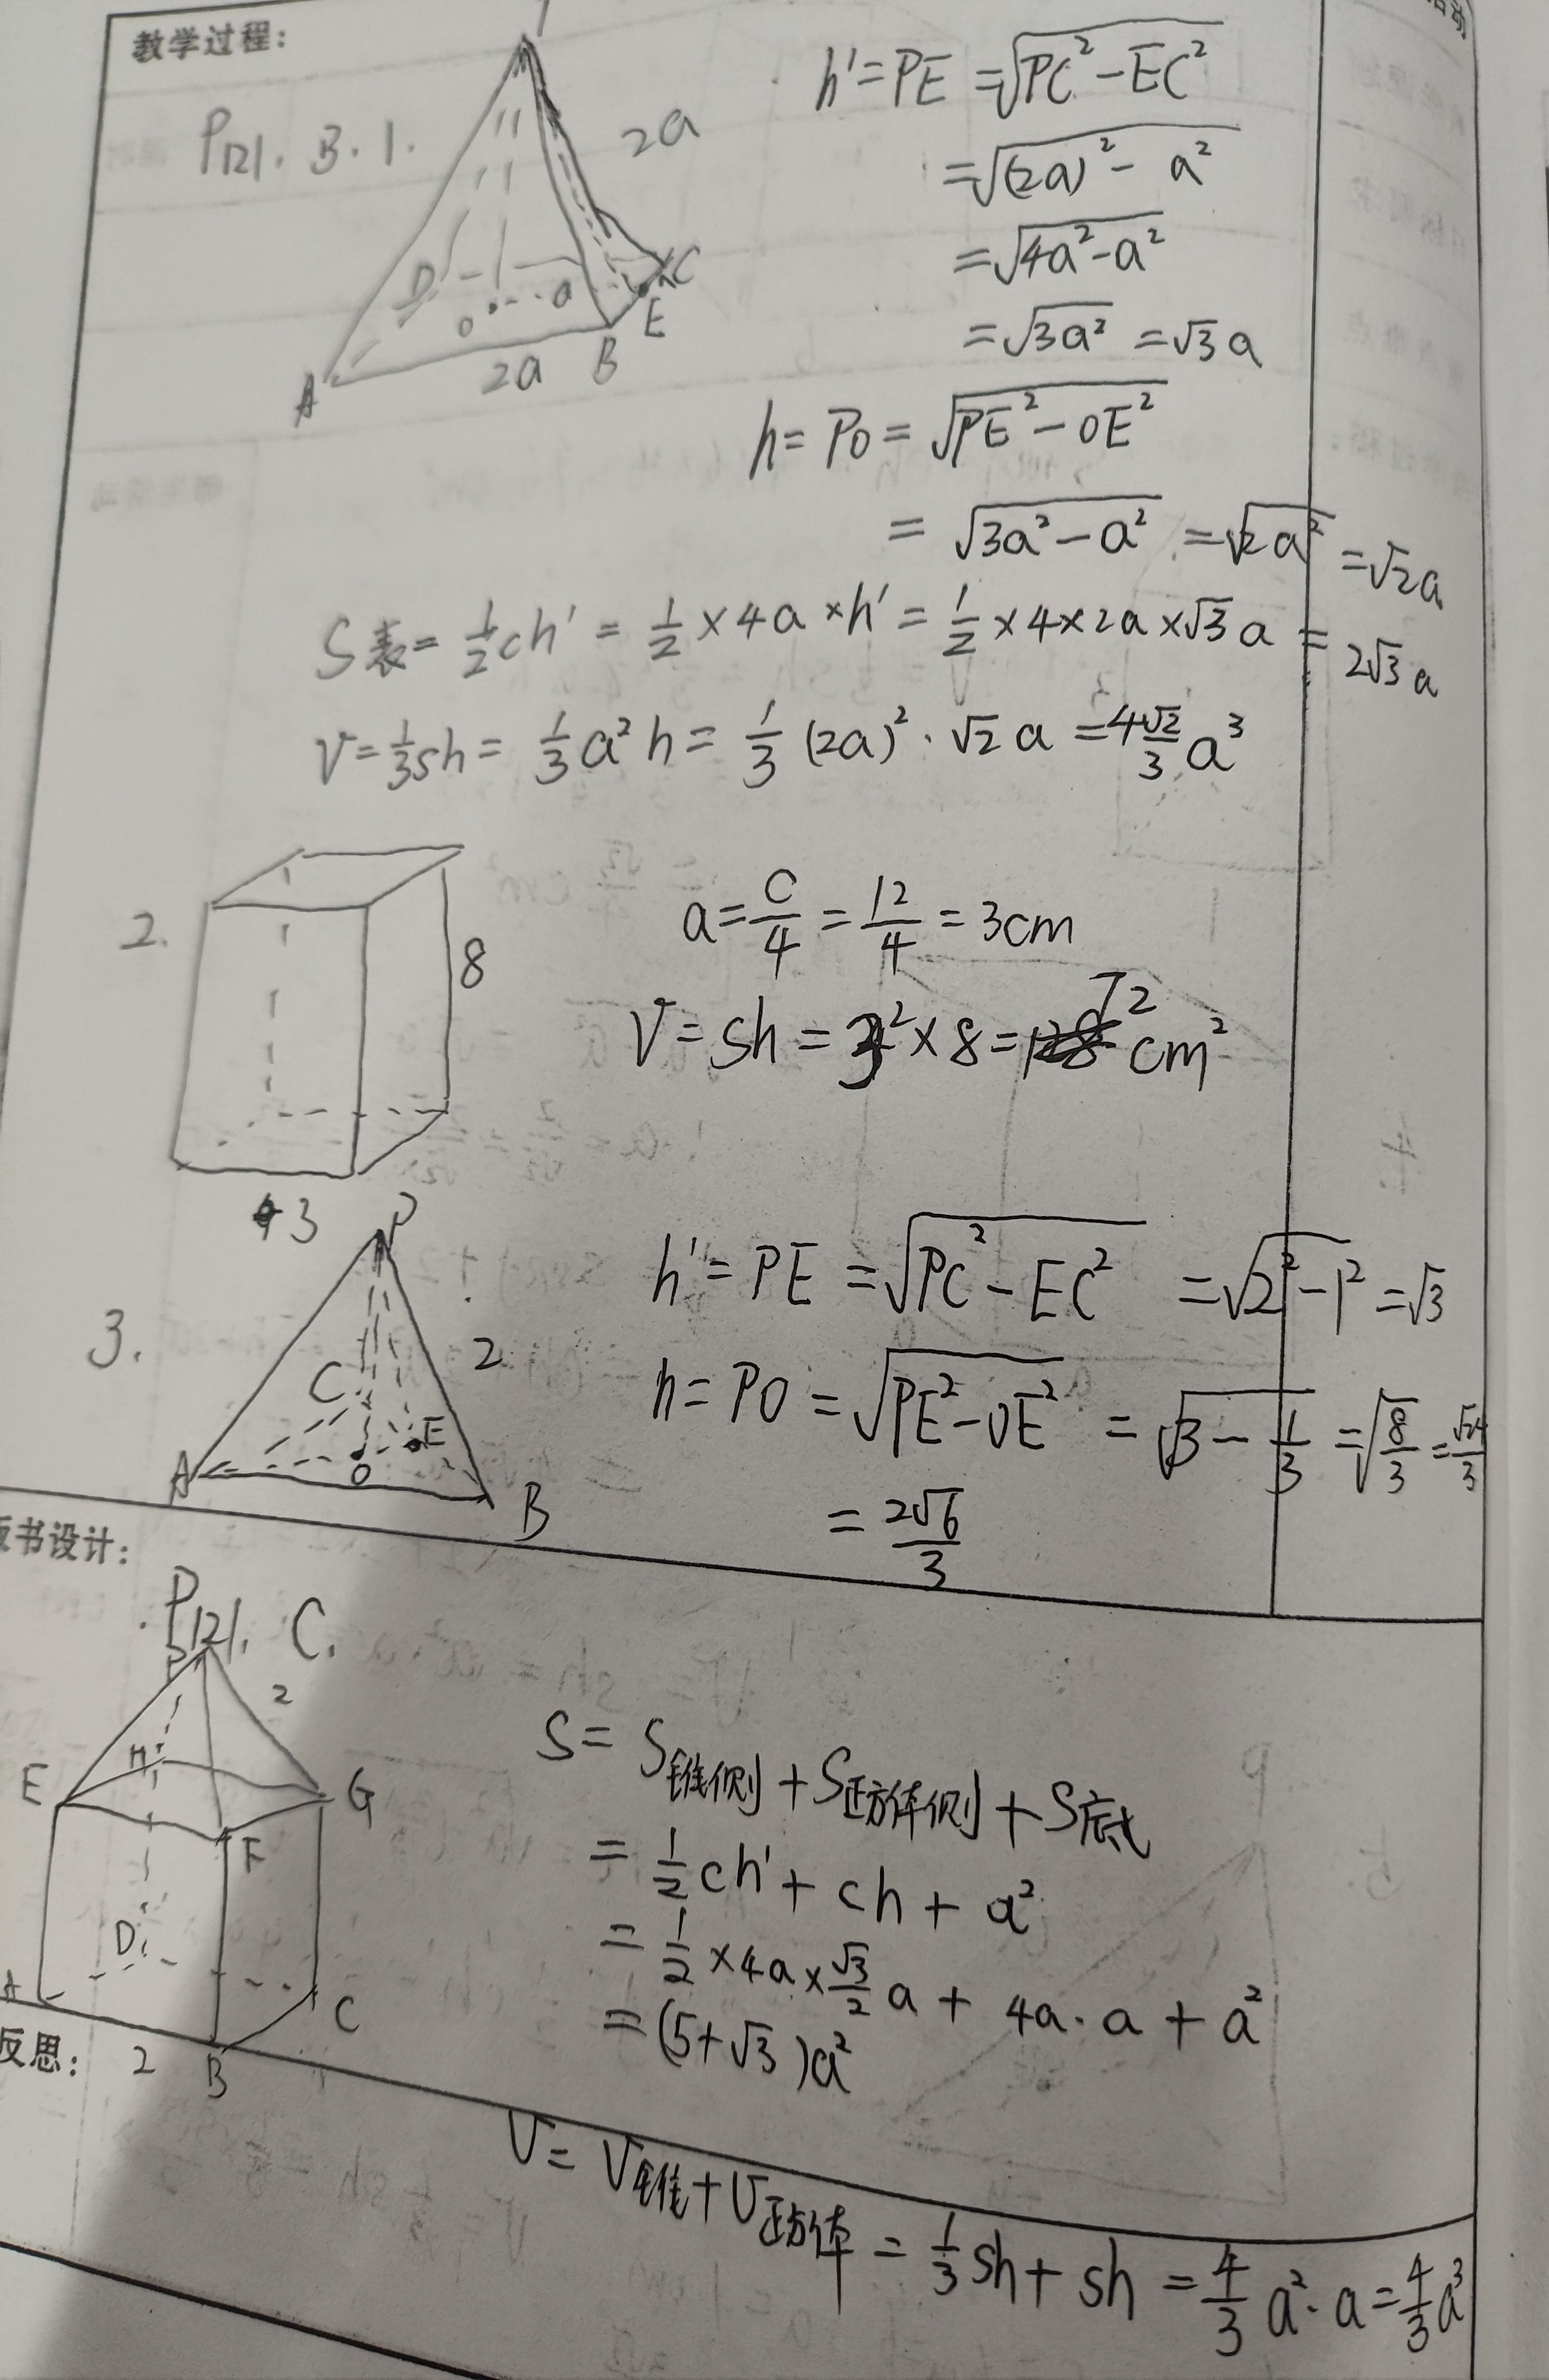 教学过程:
P121. B. 1.
2a
D
O
a
C
E
A
2a
B
h'=PE=√(PC²-EC²)
=√((2a)²-a²)
=√(4a²-a²)
=√(3a²)=√3a
h=PO=√(PE²-OE²)
=√(3a²-a²)=√(2a²)=√2a
S表=1/2ch'=1/2×4a×h'=1/2×4×2a×√3a=2√3a
V=1/3sh=1/3a²h=1/3(2a)²·√2a=4√2/3a³
2.
8
3
a=C/4=12/4=3cm
V=sh=3²×8=72cm²
3.
P
2
C
E
A
O
B
h'=PE=√(PC²-EC²)=√(2²-1²)=√3
h=PO=√(PE²-OE²)=√(3-1/3)=√(8/3)=√24/3
=2√6/3
板书设计:
P121. C.
P
2
E
H
G
F
D
A
C
2
B
S=S锥侧+S正方体侧+S底
=1/2ch'+ch+a²
=1/2×4a×√3/2a+4a·a+a²
=(5+√3)a²
反思:
V=V锥+V正方体=1/3sh+sh=4/3a²·a=4/3a³